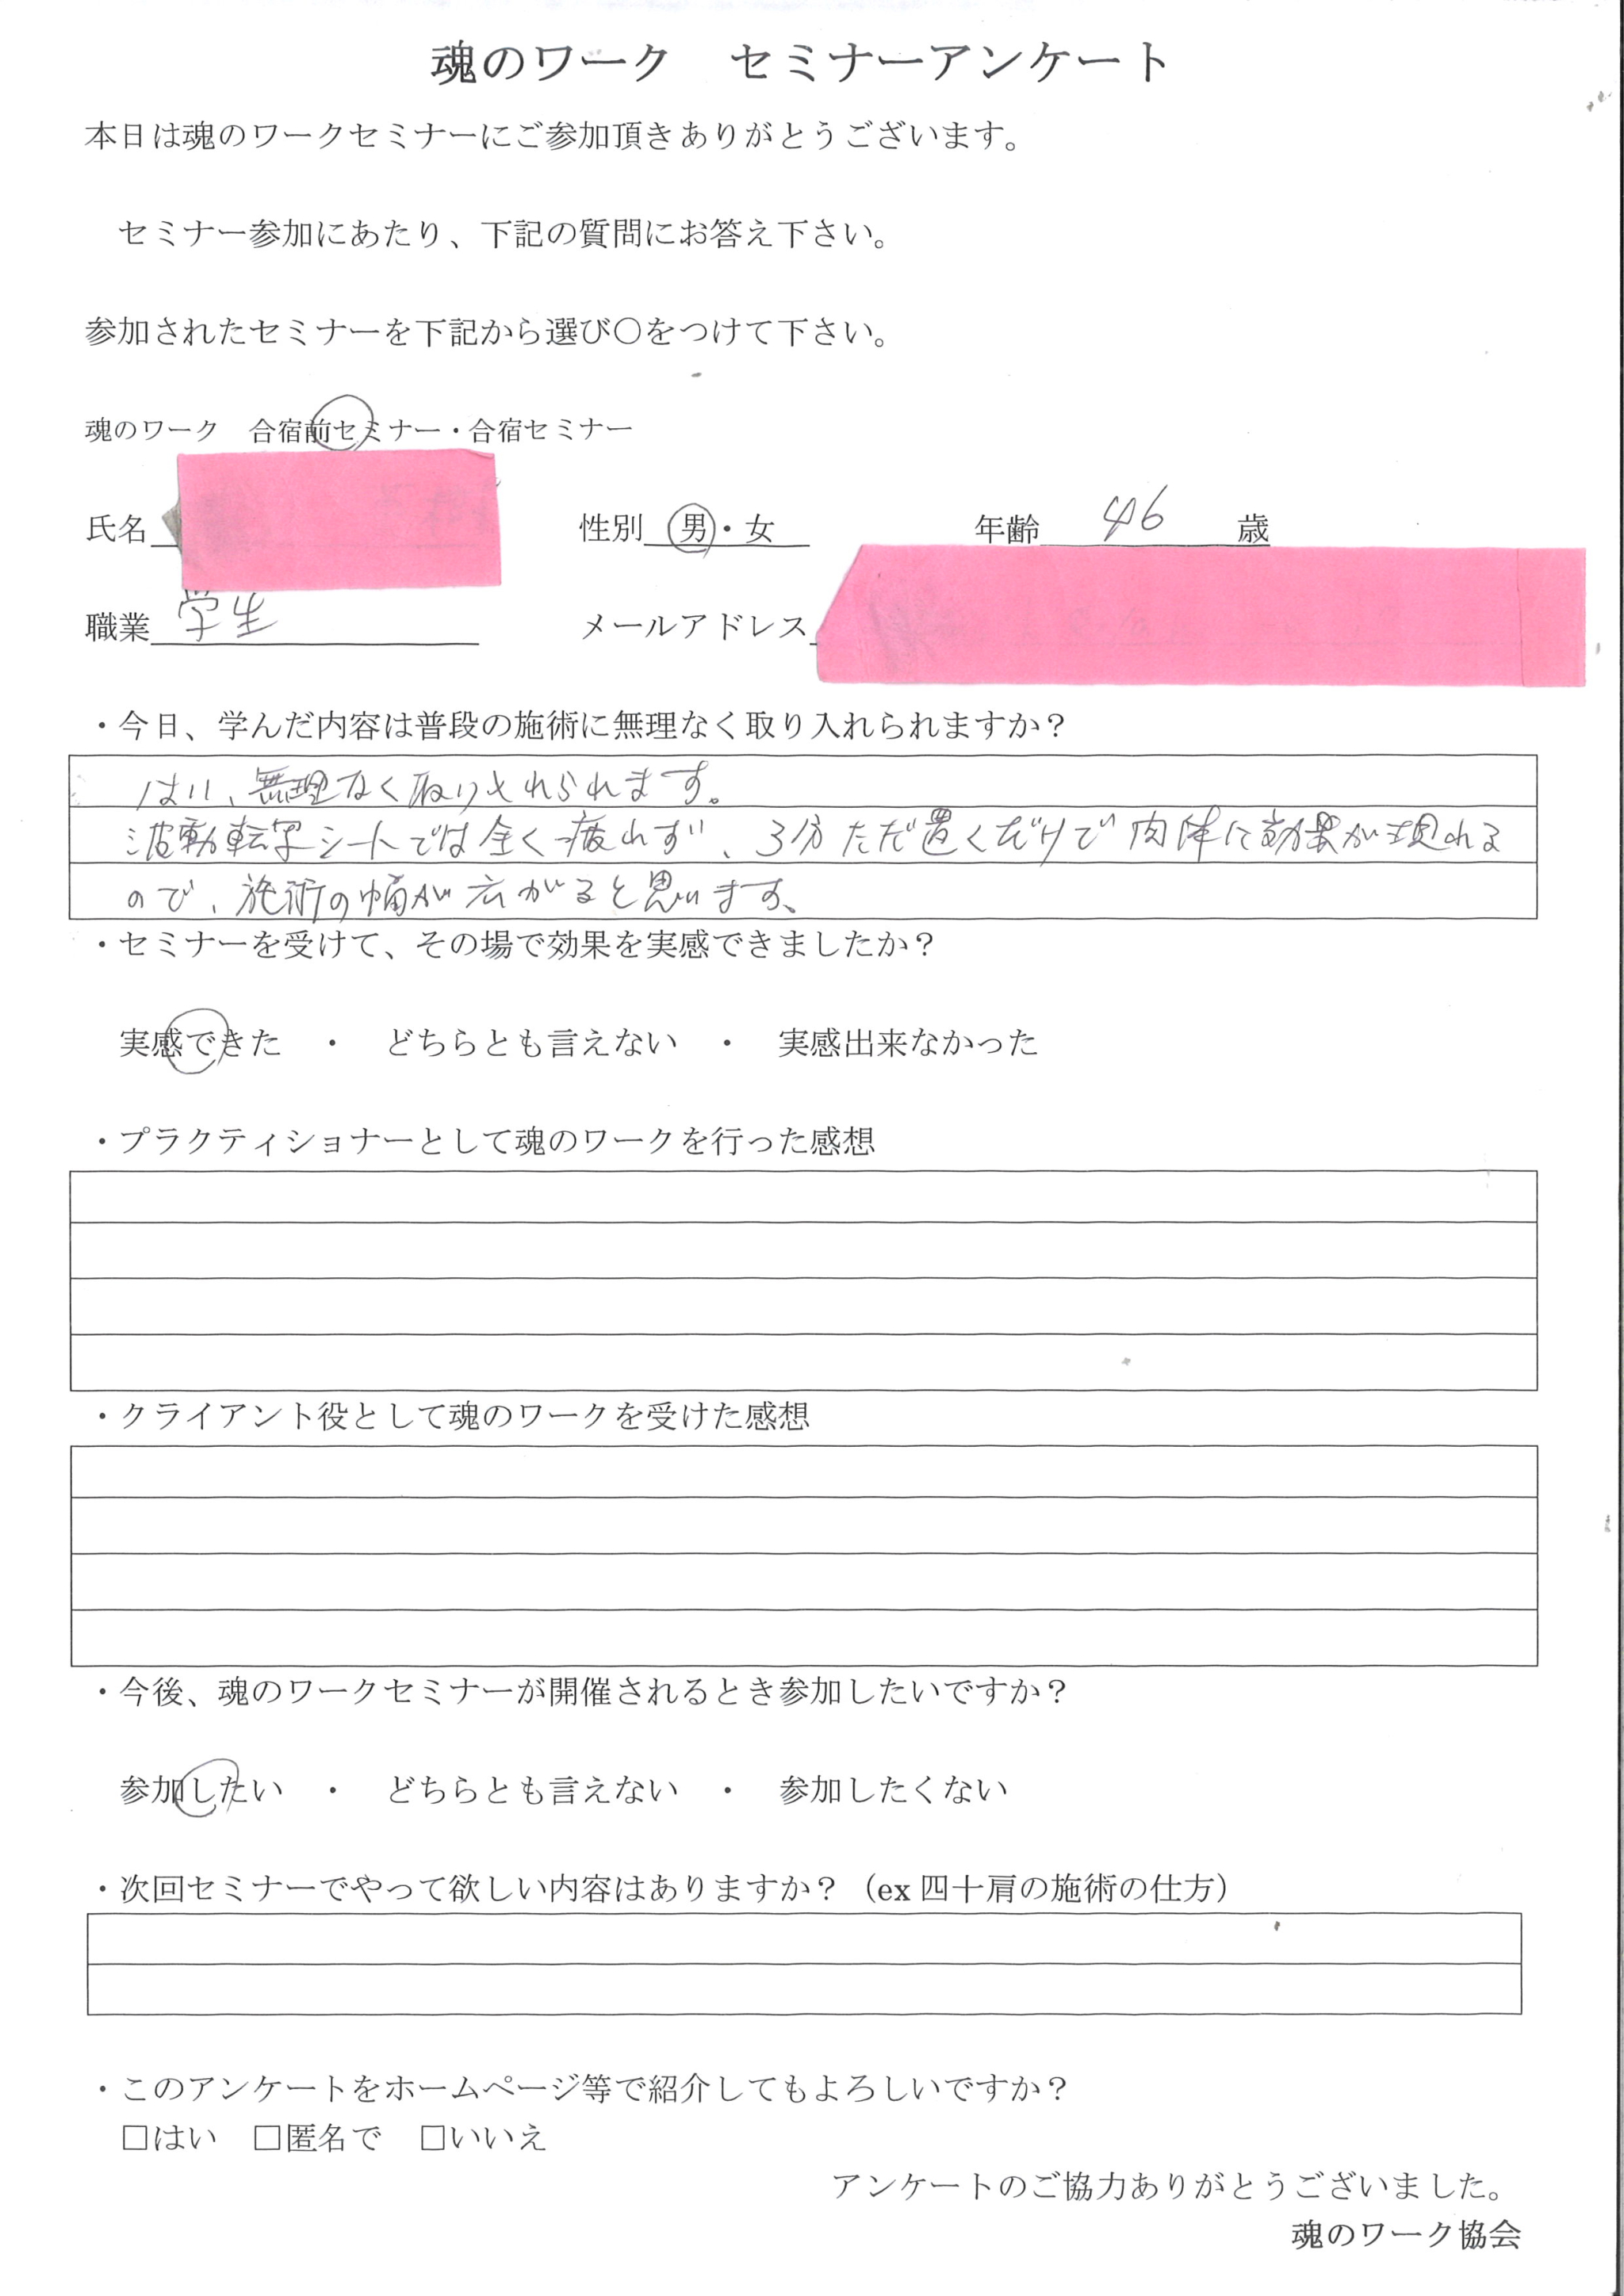 魂のワーク　セミナーアンケート
本日は魂のワークセミナーにご参加頂きありがとうございます。
セミナー参加にあたり、下記の質問にお答え下さい。
参加されたセミナーを下記から選び〇をつけて下さい。
魂のワーク　合宿前セミナー・合宿セミナー
氏名　性別　男・女　年齢　46　歳
職業　学生　メールアドレス
・今日、学んだ内容は普段の施術に無理なく取り入れられますか？
はい、無理なく取り入れられます。
波動転写シートでは全く疲れず、3分ただ置くだけで肉体に効果が現れる
ので、施術の幅が広がると思います。
・セミナーを受けて、その場で効果を実感できましたか？
実感できた　・　どちらとも言えない　・　実感出来なかった
・プラクティショナーとして魂のワークを行った感想
・クライアント役として魂のワークを受けた感想
・今後、魂のワークセミナーが開催されるとき参加したいですか？
参加したい　・　どちらとも言えない　・　参加したくない
・次回セミナーでやって欲しい内容はありますか？（ex 四十肩の施術の仕方）
・このアンケートをホームページ等で紹介してもよろしいですか？
□はい　□匿名で　□いいえ
アンケートのご協力ありがとうございました。
魂のワーク協会